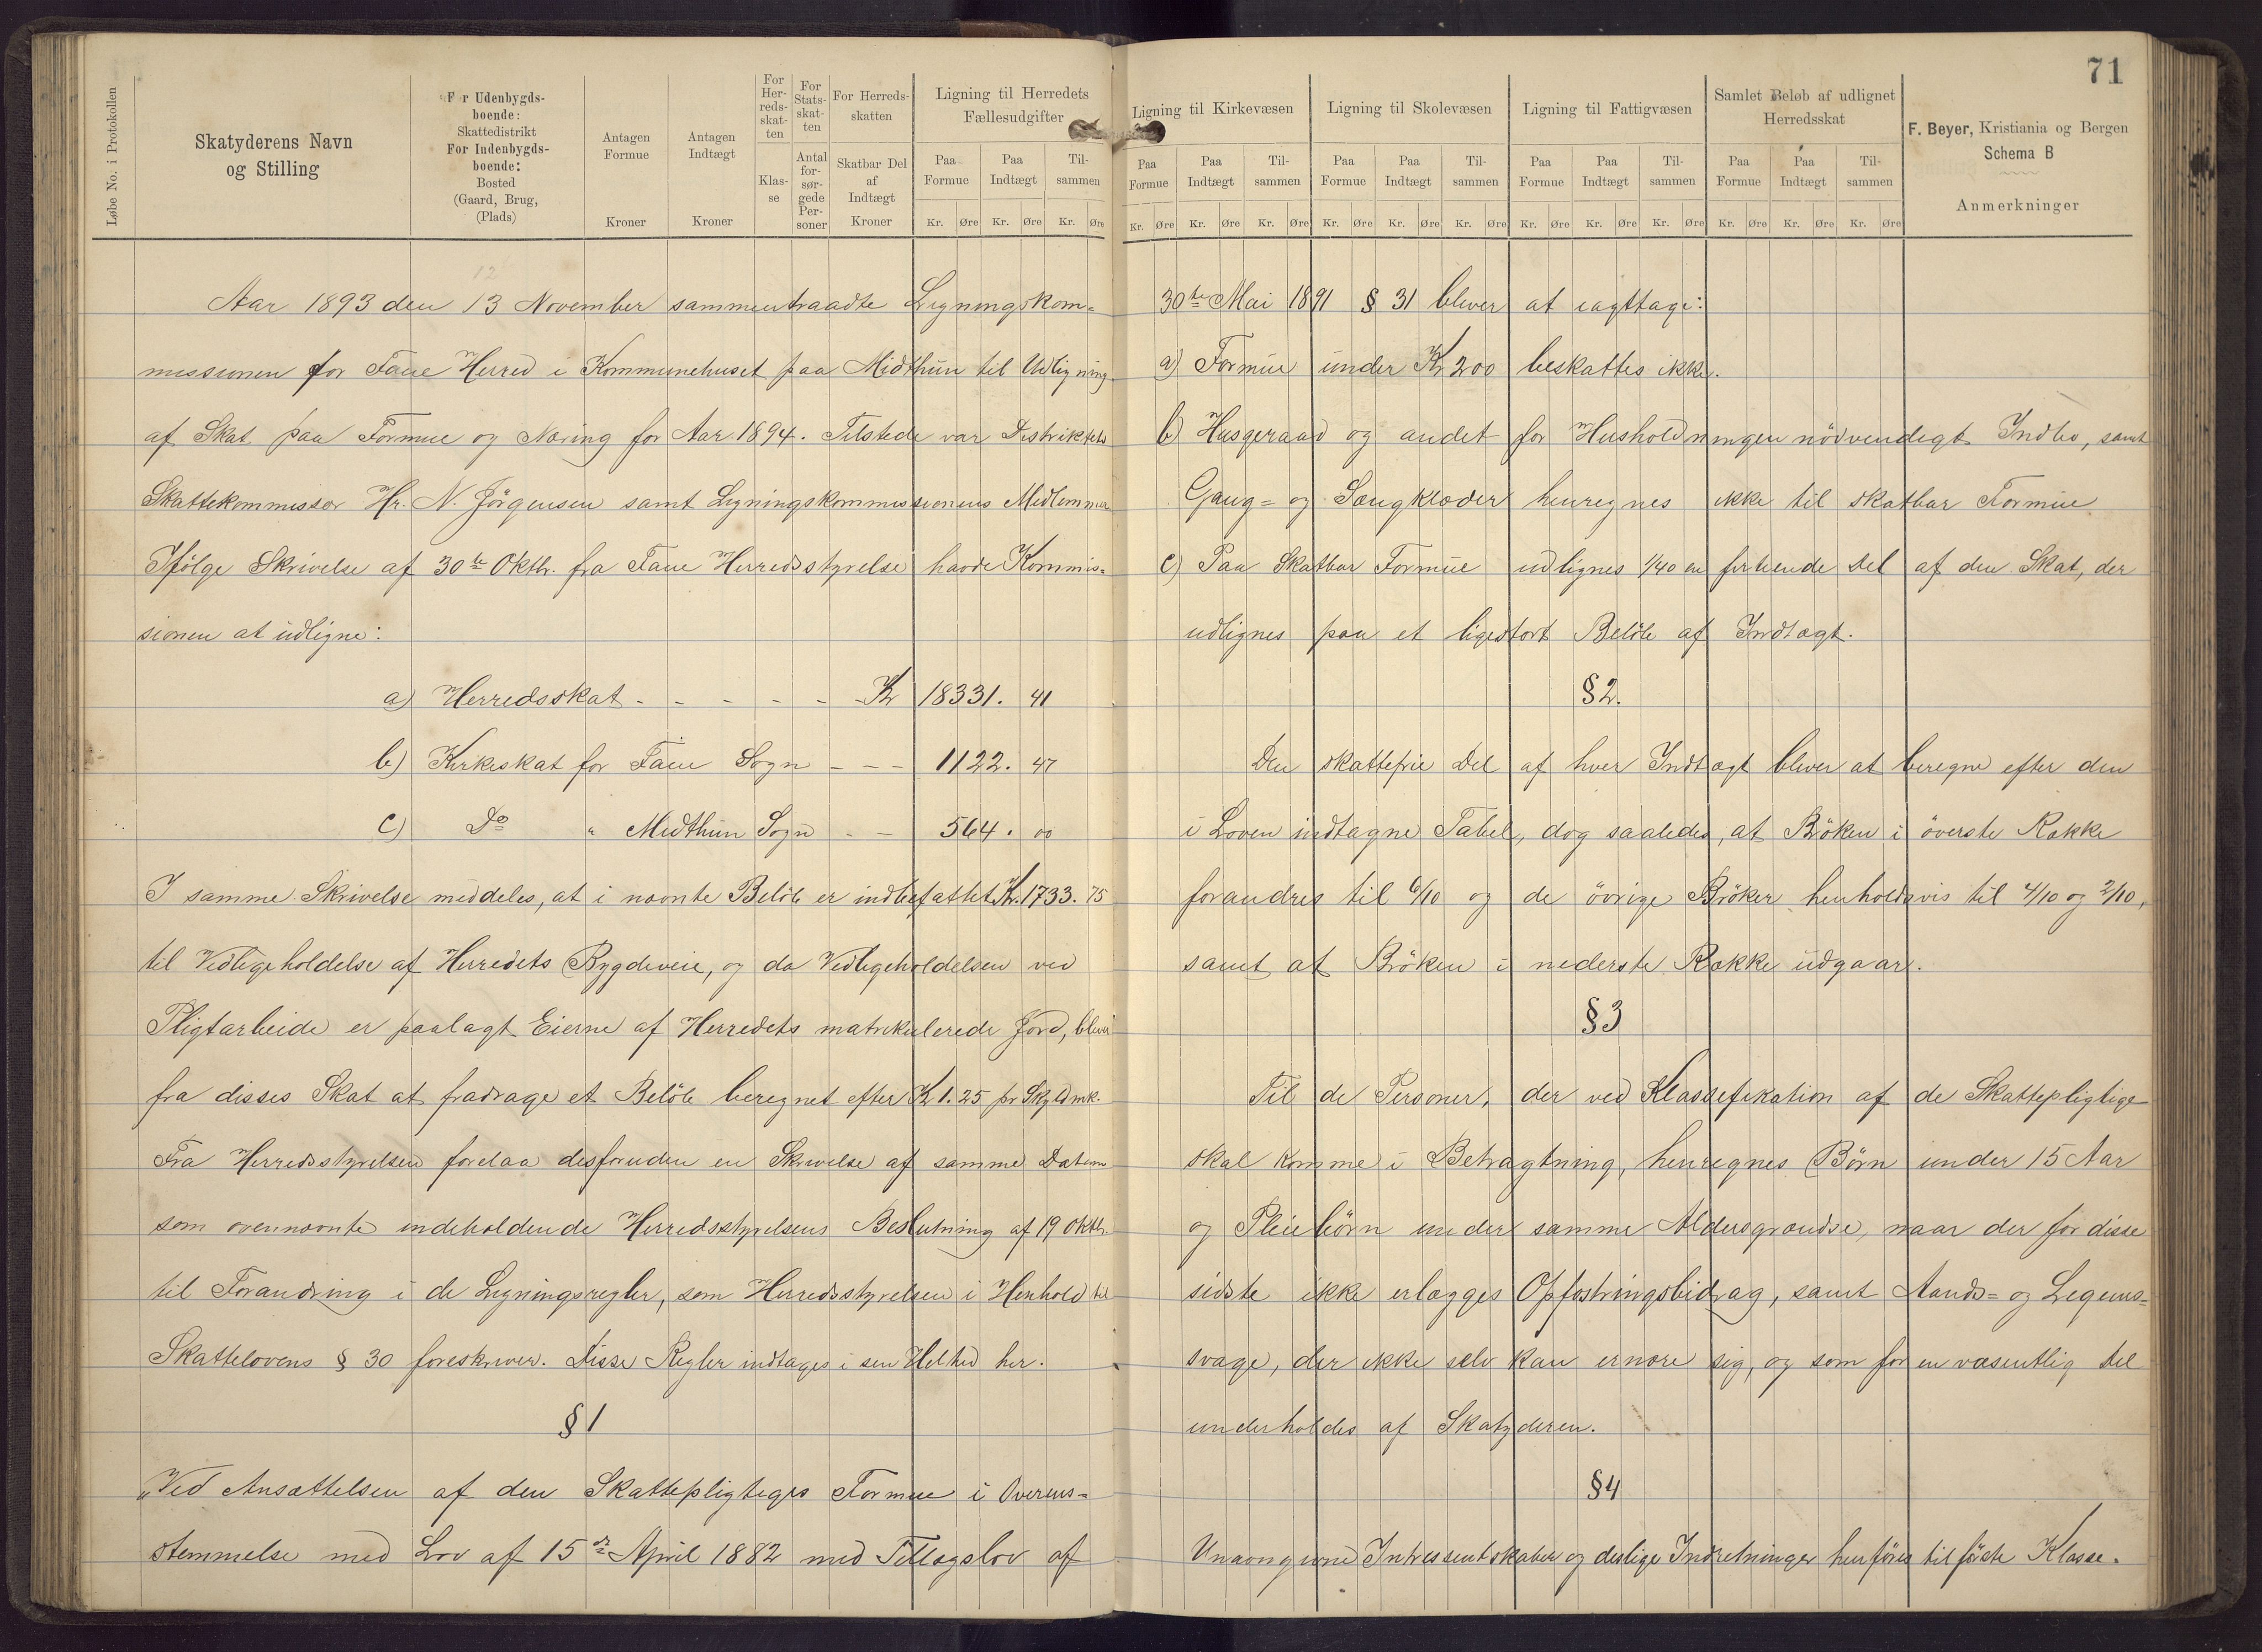 71
Løbe No. i Protokollen
Skatyderens Navn
og Stilling
For Udenbygds-
boende:
Skattedistrikt
For Indenbygds-
boende:
Bosted
(Gaard, Brug,
(Plads)
Antagen
Formue
Kroner
Antagen
Indtægt
Kroner
For
Her-
reds-
skat-
ten
Klas-
se
For
Stats-
skat-
ten
Antal
for-
sør-
gede
Per-
soner
For Herreds-
skatten
Skatbar Del
af
Indtægt
Kroner
Ligning til Herredets
Fællesudgifter
Paa Formue Paa Indtægt Til-sammen
Kr. Øre Kr. Øre Kr. Øre
Ligning til Kirkevæsen
Paa Formue Paa Indtægt Til-sammen
Kr. Øre Kr. Øre Kr. Øre
Ligning til Skolevæsen
Paa Formue Paa Indtægt Til-sammen
Kr. Øre Kr. Øre Kr. Øre
Ligning til Fattigvæsen
Paa Formue Paa Indtægt Til-sammen
Kr. Øre Kr. Øre Kr. Øre
Samlet Beløb af udlignet
Herredsskat
Paa Formue Paa Indtægt Til-sammen
Kr. Øre Kr. Øre Kr. Øre
F. Beyer, Kristiania og Bergen
Schema B
Anmerkninger
12
Aar 1893 den 13 November sammentraadte Ligningskom=
missionen for Fane Herred i Kommunehuset paa Midthun til Udligning
af Skat paa Formue og Næring for Aar 1894. Tilstede var Distriktets
Skattekommissær Hr. N. Jörgensen samt Ligningskommissionens Medlemmer
Ifölge Skrivelse af 30te Oktbr. fra Fane Herredsstyrelse havde Kommis=
sionen at udligne:
a) Herredsskat - - - - - - Kr 18331. 41
b) Kirkeskat for Fane Sogn - - - 1122. 47
c) Do " Midthun Sogn - - 564. 00
I samme Skrivelse meddeles, at i nævnte Belöb er indbefattet Kr. 1733. 75
til Vedligeholdelse af Herredets Bygdeveie, og da Vedligeholdelsen ved
Pligtarbeide er paalagt Eierne af Herredets matrikulerede Jord, bliver
fra disses Skat at fradrage et Belöb beregnet efter Kr 1.25 pr Skyldmk.
Fra Herredsstyrelsen forelaa desforuden en Skrivelse af samme Datum
som ovennævnte indeholdende Herredsstyrelsens Beslutning af 19 Oktbr.
til Forandring i de Ligningsregler, som Herredsstyrelsen i Henhold til
Skattelovens § 30 foreskriver. Disse Regler indtages i sen Helhed her.
§ 1
"Ved Ansættelsen af den Skattepligtiges Formue i Overens=
stemmelse med Lov af 15de April 1882 med Tillægslov af
30te Mai 1891 § 31 bliver at iagttage:
a) Formue under Kr 200 beskattes ikke.
b) Husgeraad og andet for Husholdningen nödvendigt Indbo, samt
Gang= og Sengklæder henregnes ikke til skatbar Formue
c) Paa Skatbar Formue udlignes 1/40 en firtiende Del af den Skat, der
udlignes paa et ligestort Belöb af Indtægt.
§ 2.
Den skattefrie Del af hver Indtægt bliver at beregne efter den
i Loven indtagne Tabel, dog saaledes, at Bröken i överste Række
forandres til 6/10 og de övrige Bröker henholdsvis til 4/10 og 2/10,
samt at Bröken i nederste Række udgaar.
§ 3
Til de Personer, der ved Klassefikation af de Skattepligtige
skal komme i Betragtning, henregnes Börn under 15 Aar
og Pleiebörn under samme Aldersgrændse, naar der for disse
sidste ikke erlægges Opfostringsbidrag, samt Aands= og Legems=
svage, der ikke selv kan ernære sig, og som for en væsentlig Del
underholdes af Skatyderen.
§ 4
Unævngivne Intressentskaber og deslige Indretninger henföres til förste Klasse.